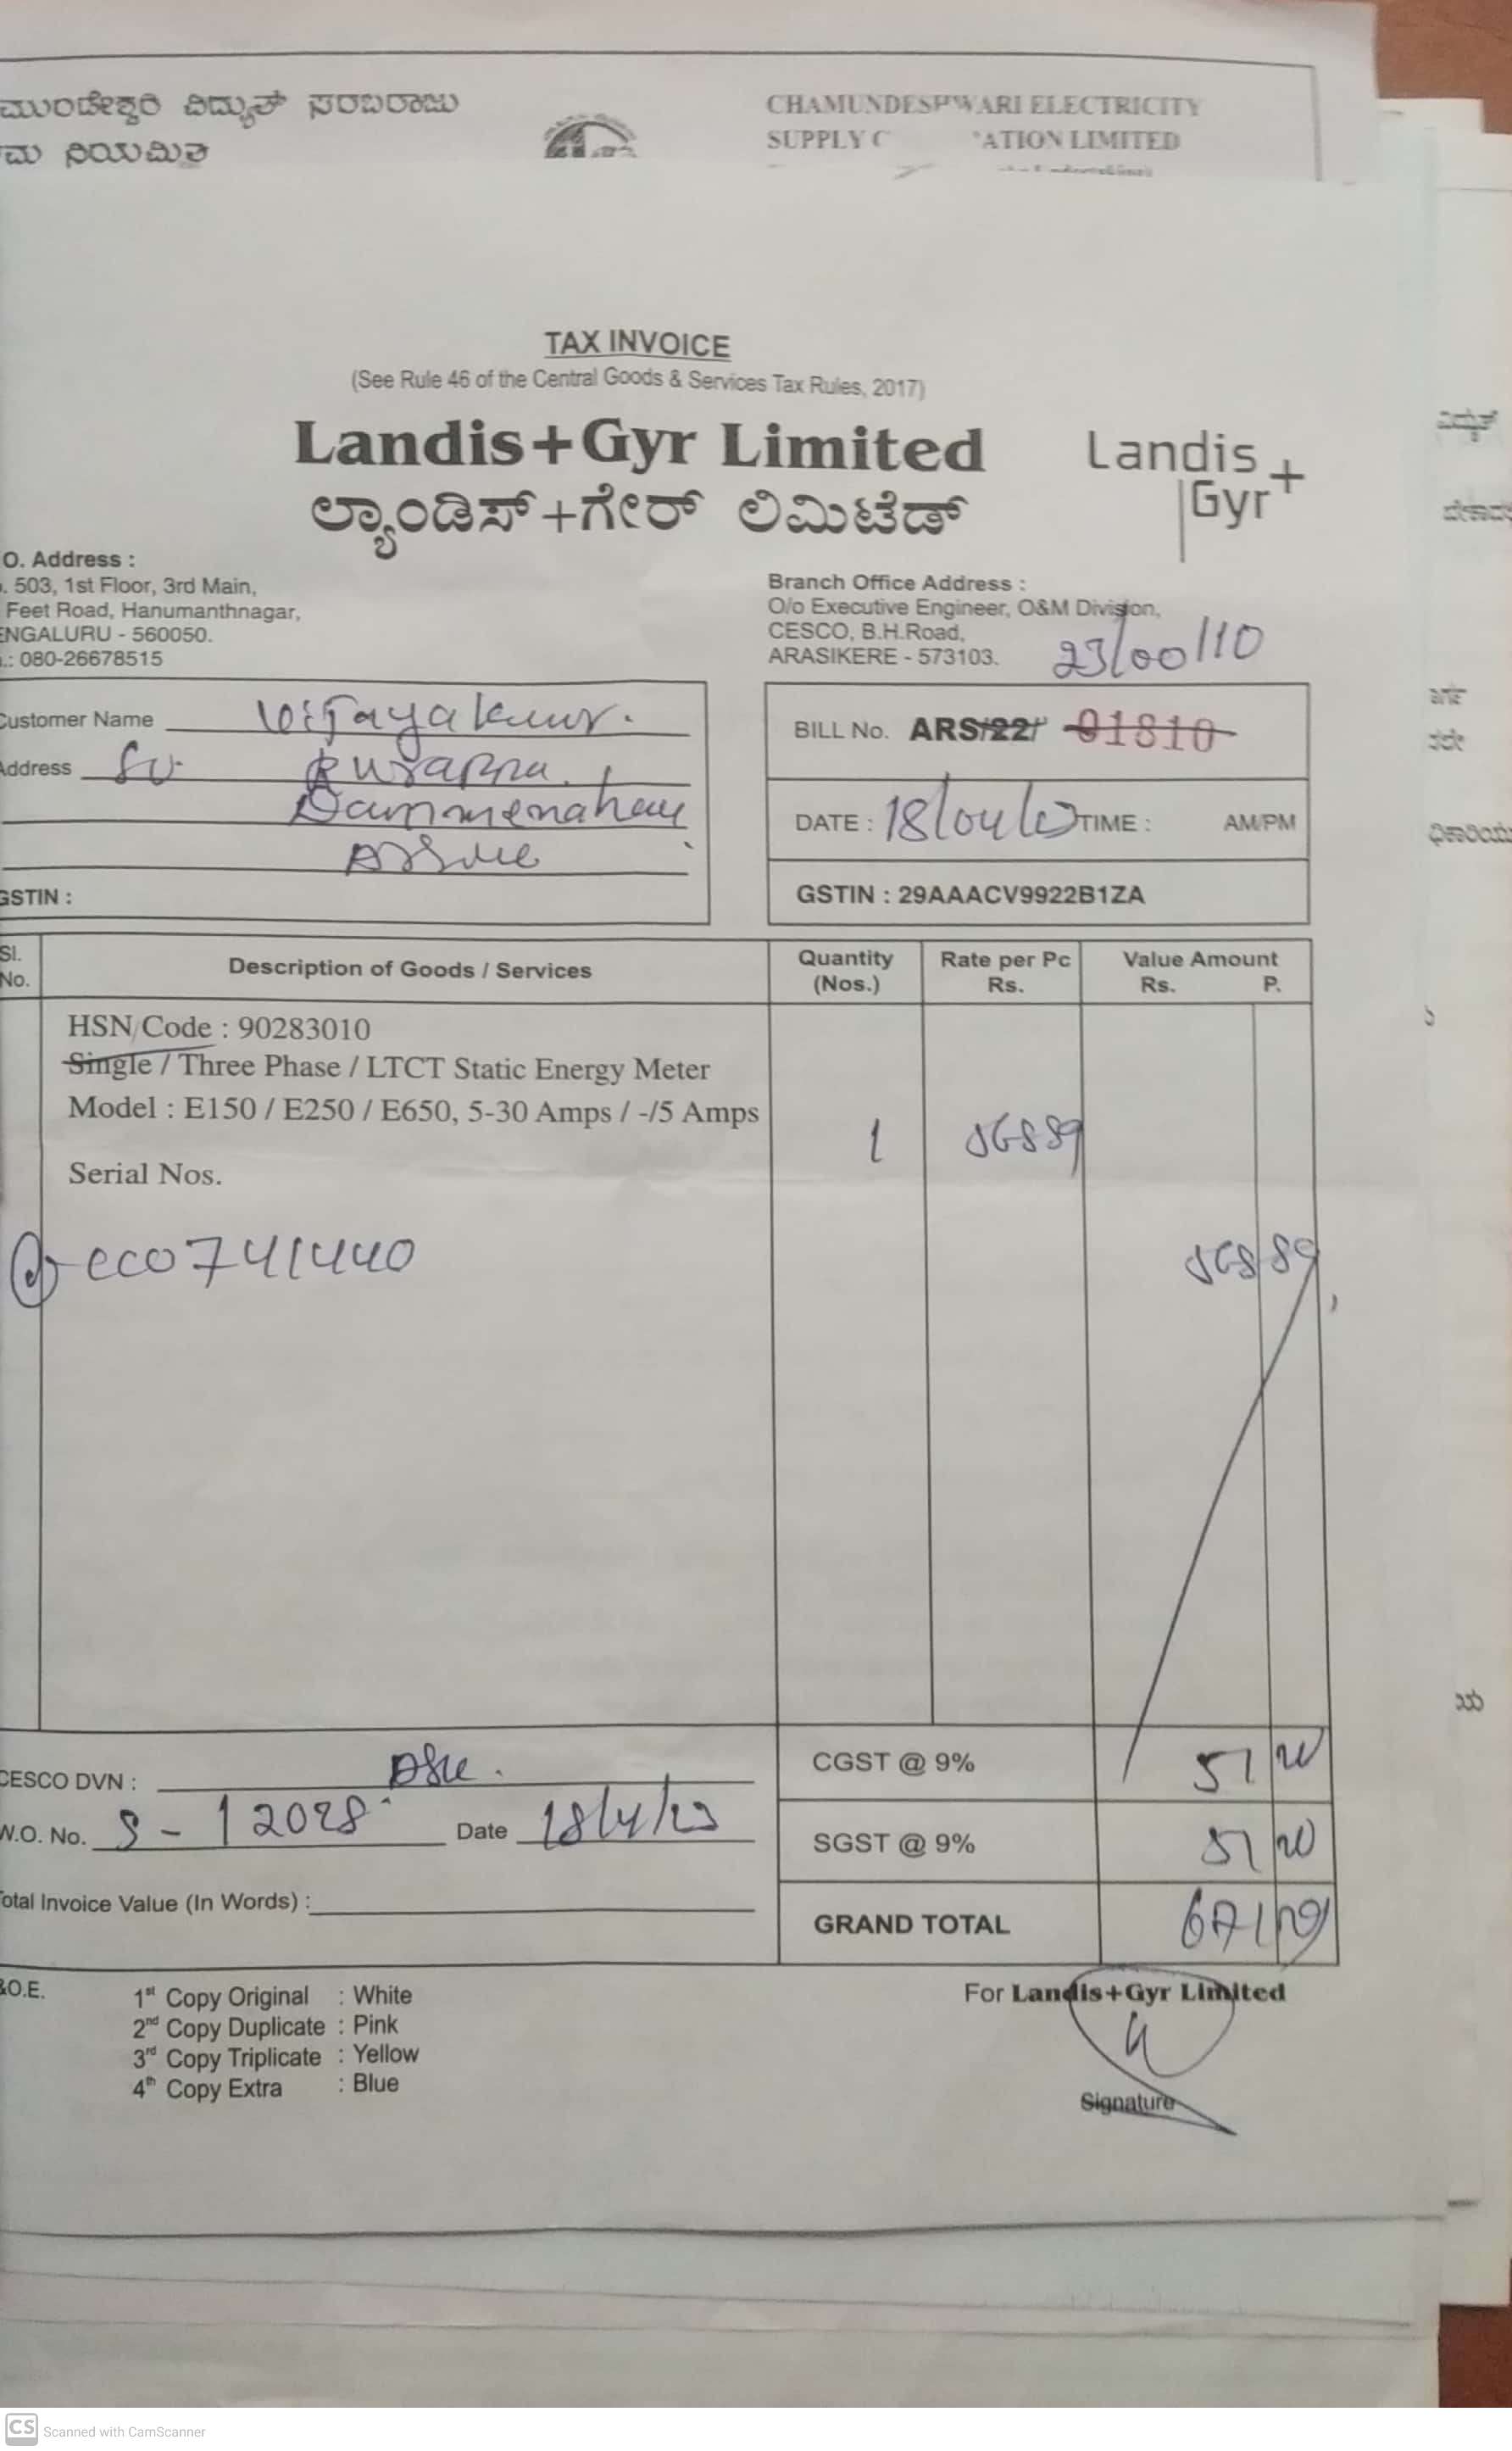 ಮುಂಡೇಶ್ವರಿ ವಿದ್ಯುತ್ ಸರಬರಾಜು
ಮ ನಿಯಮಿತ
CHAMUNDESHWARI ELECTRICITY
SUPPLY C ATION LIMITED
TAX INVOICE
(See Rule 46 of the Central Goods & Services Tax Rules, 2017)
Landis+Gyr Limited
Landis+
Gyr
ಲ್ಯಾಂಡಿಸ್+ಗೇರ್ ಲಿಮಿಟೆಡ್
O. Address :
. 503, 1st Floor, 3rd Main,
Feet Road, Hanumanthnagar,
ENGALURU - 560050.
.: 080-26678515
Branch Office Address :
O/o Executive Engineer, O&M Division,
CESCO, B.H.Road,
ARASIKERE - 573103.
23/00/10
Customer Name Vijayakumar.
Address
GSTIN :
BILL No. ARS/22/ 01810
DATE : 18/04/ TIME : AM/PM
GSTIN : 29AAACV9922B1ZA
Sl. No. Description of Goods / Services Quantity (Nos.) Rate per Pc Rs. Value Amount Rs. P.
HSN Code : 90283010
Single / Three Phase / LTCT Static Energy Meter
Model : E150 / E250 / E650, 5-30 Amps / -/5 Amps
1 56889
Serial Nos.
eco741440
56889
CESCO DVN : ASK.
CGST @ 9% 51 20
W.O. No. S-12028 Date 18/4/23
SGST @ 9% 51 20
Total Invoice Value (In Words) :
GRAND TOTAL 671 29
&O.E.
1st Copy Original : White
2nd Copy Duplicate : Pink
3rd Copy Triplicate : Yellow
4th Copy Extra : Blue
For Landis+Gyr Limited
Signature
CS Scanned with CamScanner